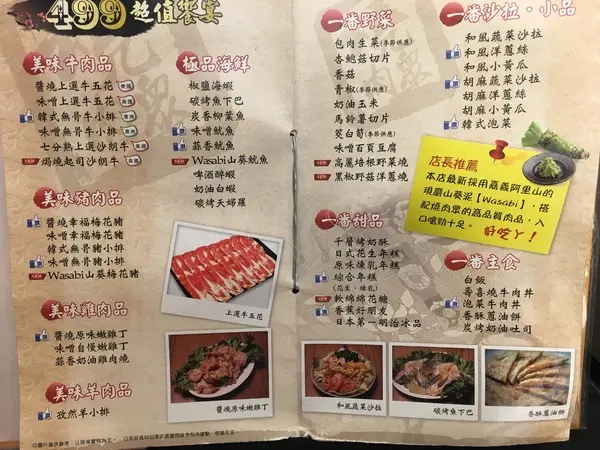 499 超值饗宴
美味牛肉品
醬燒上選牛五花
味噌上選牛五花
韓式無骨牛小排
味噌無骨牛小排
七分熟上選沙朗牛
焗燒起司沙朗牛
美味豬肉品
醬燒幸福梅花豬
味噌幸福梅花豬
韓式無骨豬小排
味噌無骨豬小排
NEW Wasabi山葵梅花豬
美味雞肉品
醬燒原味嫩雞丁
味噌自慢嫩雞丁
蒜香奶油雞肉燒
美味羊肉品
孜然羊小排
極品海鮮
椒鹽海蝦
碳烤魚下巴
炭香柳葉魚
味噌魷魚
蒜香魷魚
NEW Wasabi山葵魷魚
啤酒醉蝦
奶油白蝦
碳烤天婦羅
上選牛五花
醬燒原味嫩雞丁
一番野菜
包肉生菜(季節供應)
杏鮑菇切片
香菇
青椒(季節供應)
奶油玉米
馬鈴薯切片
茭白筍(季節供應)
味噌百頁豆腐
NEW 高麗培根野菜燒
NEW 黑椒野菇洋蔥燒
一番甜品
千層烤奶酥
日式花生年糕
原味煉乳年糕
綜合年糕
(花生、煉乳)
NEW 軟綿綿花糖
香蕉好朋友
日本第一明治冰品
一番沙拉・小品
和風蔬菜沙拉
和風洋蔥絲
和風小黃瓜
胡麻蔬菜沙拉
胡麻洋蔥絲
胡麻小黃瓜
韓式泡菜
店長推薦
本店最新採用嘉義阿里山的
現磨山葵泥【Wasabi】，搭
配燒肉眾的高品質肉品，入
口嗆勁十足。
好吃ㄚ！
一番主食
白飯
壽喜燒牛肉丼
泡菜牛肉丼
香酥蔥油餅
炭烤奶油吐司
和風蔬菜沙拉
碳烤魚下巴
香酥蔥油餅